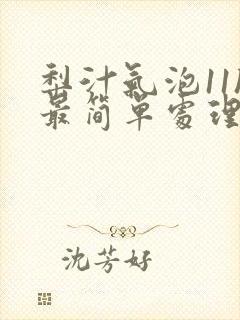 梨汁氣泡11
最简單處理
沈芳好